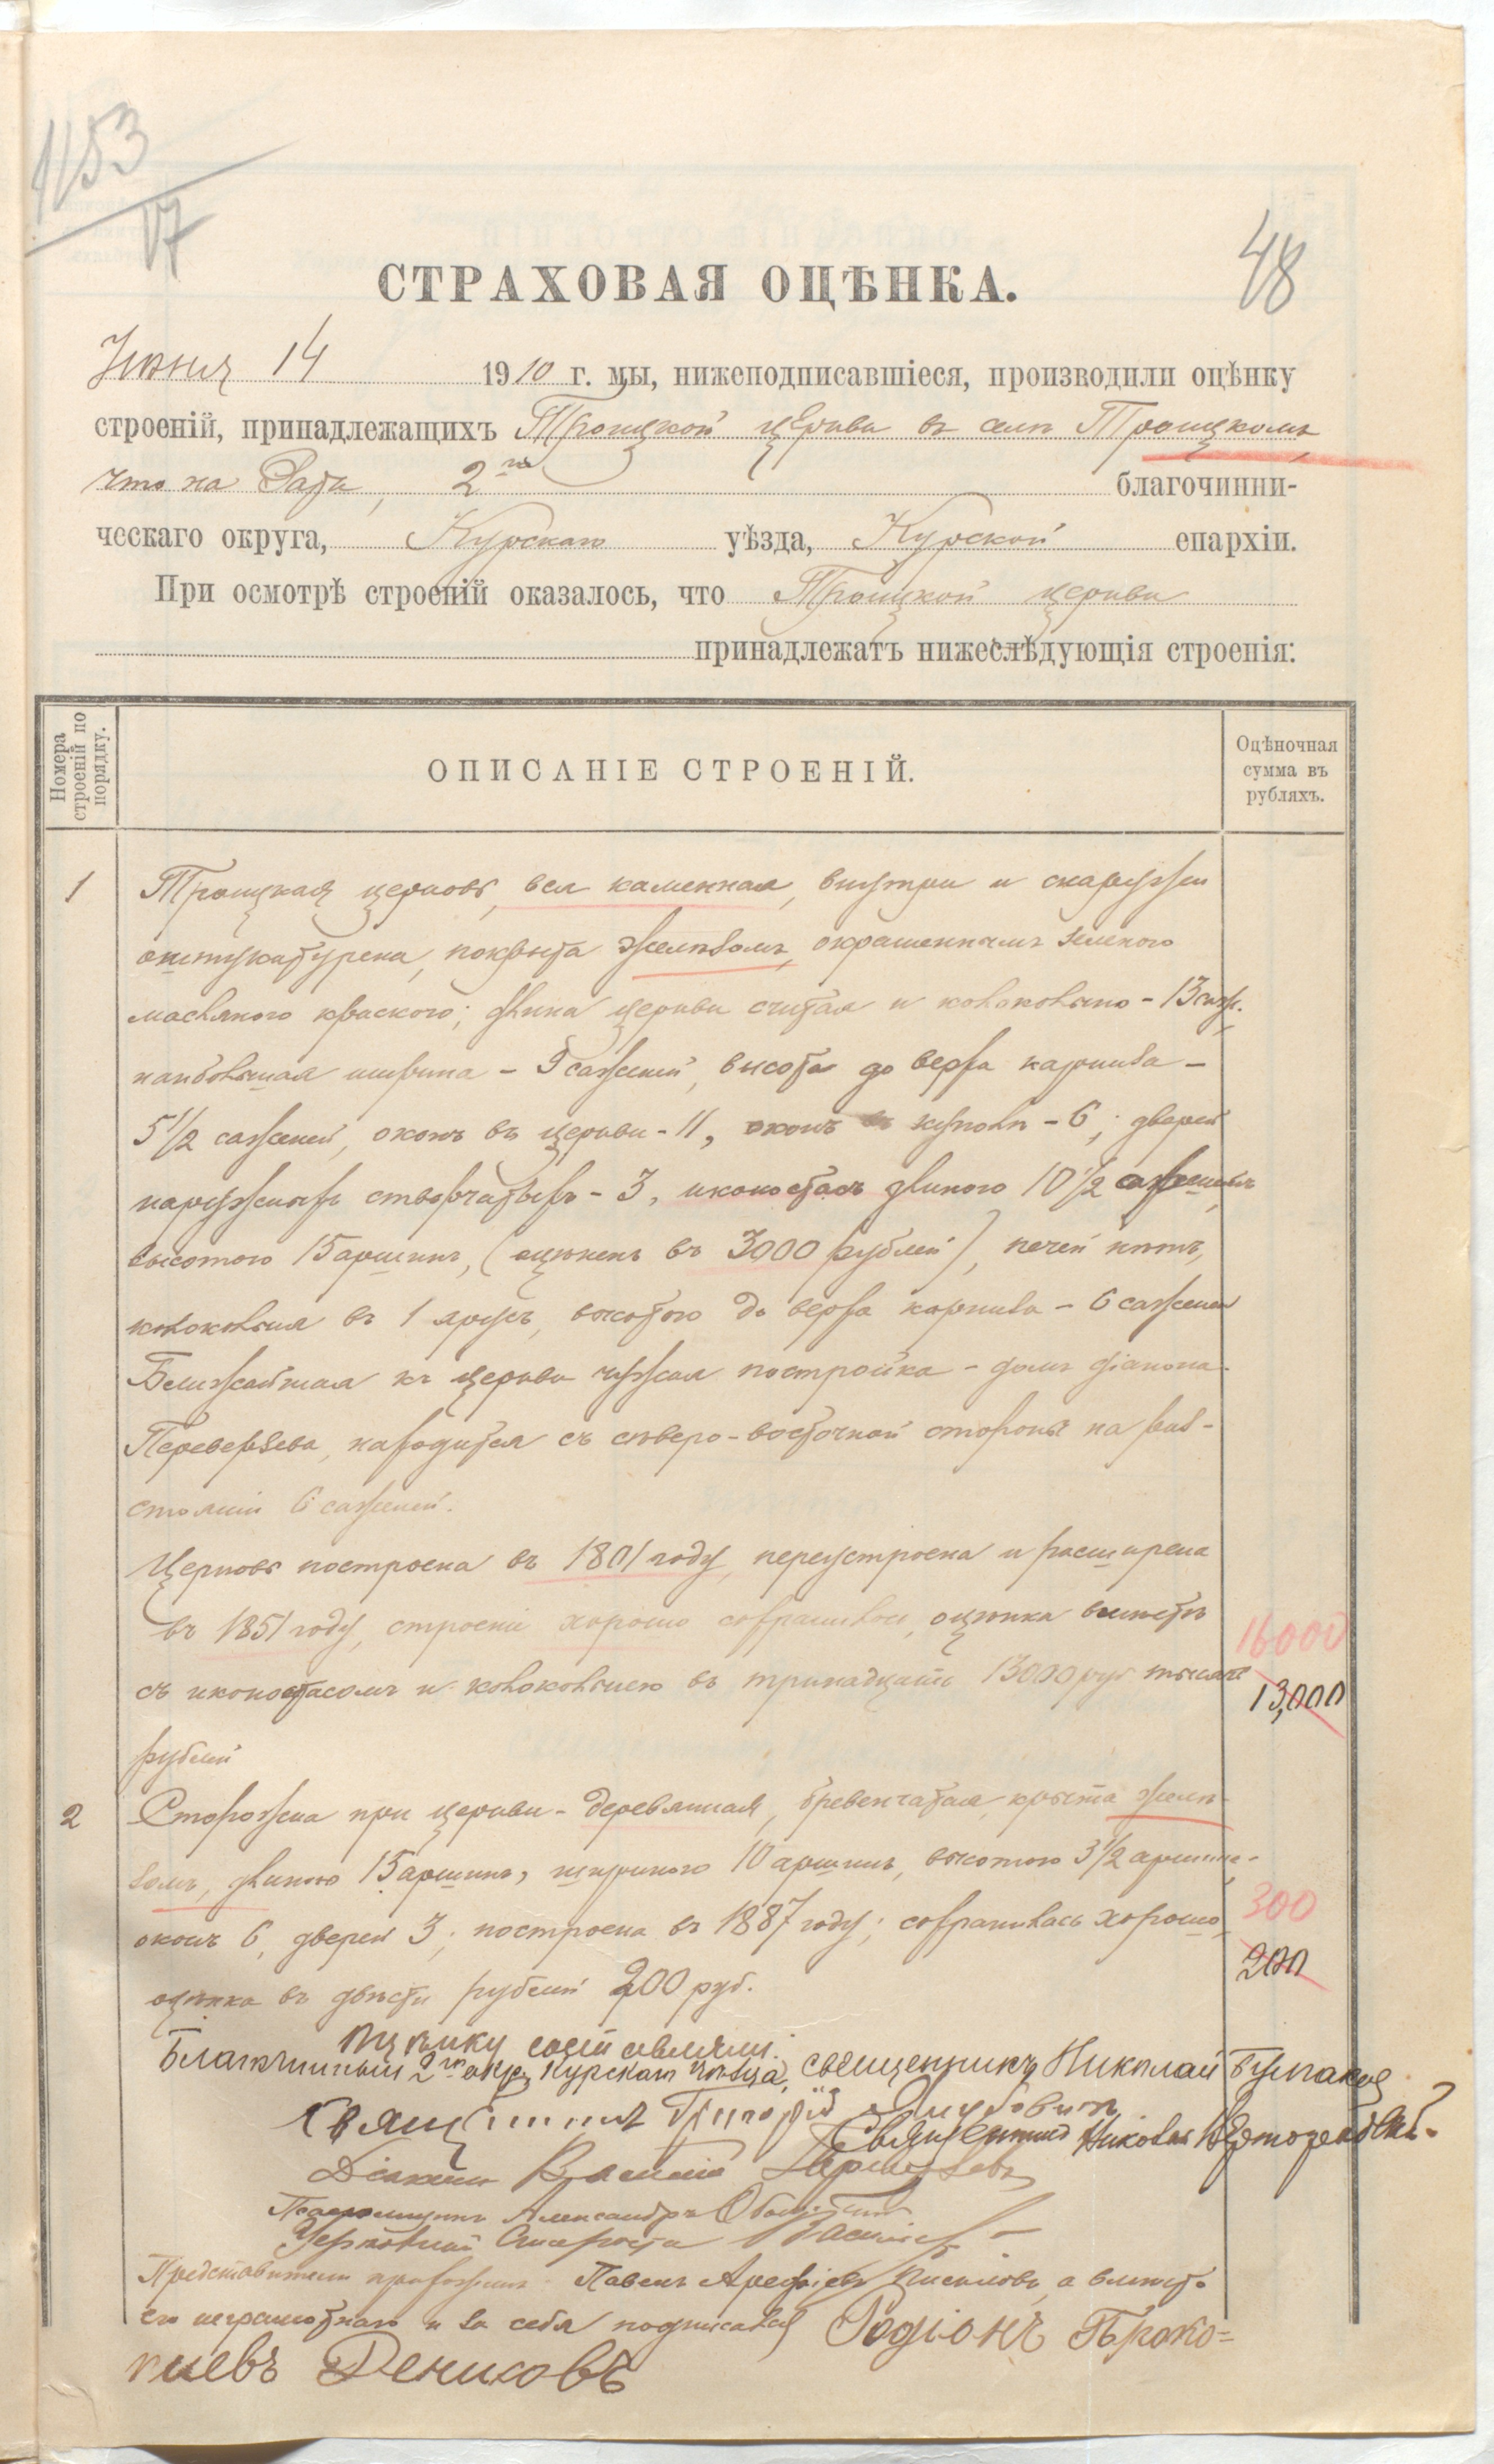 1153
17
48
СТРАХОВАЯ ОЦѢНКА.
Іюня 14 1910 г. мы, нижеподписавшіеся, производили оцѣнку
строеній, принадлежащихъ Троицкой церкви въ селѣ Троицкомъ,
что на Рати, 2го благочинни-
ческаго округа, Курскаго уѣзда, Курской епархіи.
При осмотрѣ строеній оказалось, что Троицкой церкви
принадлежатъ нижеслѣдующія строенія:
Номера строеній по порядку.
ОПИСАНІЕ СТРОЕНІЙ.
Оцѣночная сумма въ рубляхъ.
1 Троицкая церковь, вся каменная, внутри и снаружи
оштукатурена, покрыта желѣзомъ, окрашеннымъ зеленою
масляною краскою; длина церкви считая и колокольню - 13 саж.
наибольшая ширина - 9 саженей, высота до верха карниза -
5 1/2 саженей, оконъ въ церкви - 11, оконъ въ куполѣ - 6; дверей
наружныхъ створчатыхъ - 3, иконостасъ длиною 10 1/2 аршинъ,
высотою 15 аршинъ, (оцѣненъ въ 3000 рублей), печей нѣтъ,
колокольня въ 1 ярусъ, высотою до верха карниза - 6 саженей
Ближайшая къ церкви чужая постройка - домъ діакона
Переверзева, находится съ сѣверо-восточной стороны на раз-
стояніи 6 саженей.
Церковь построена въ 1801 году, переустроена и расширена
въ 1851 году, строеніе хорошо сохранилось, оцѣнка вмѣстѣ
16000
съ иконостасомъ и колокольнею въ тринадцать 13000 руб тысячъ
13,000
рублей
2 Сторожка при церкви - деревянная, бревенчатая, крыта желѣ-
зомъ, длиною 15 аршинъ, шириною 10 аршинъ, высотою 3 1/2 аршина,
300
оконъ 6, дверей 3; построена въ 1887 году; сохранилась хорошо,
200
оцѣнка въ двѣсти рублей 200 руб.
Оцѣнку составляли:
Благочинный 2го окр. Курскаго уѣзда, священникъ Николай Булгаковъ
Священникъ Григорій
Священникъ Николай
Діаконъ Василій Переверзевъ
Псаломщикъ Александръ
Церковный Староста
Представители прихожанъ: Павелъ Арефіевъ, а вмѣсто
его неграмотнаго и за себя подписался Родіонъ Проко-
пиевъ Денисовъ